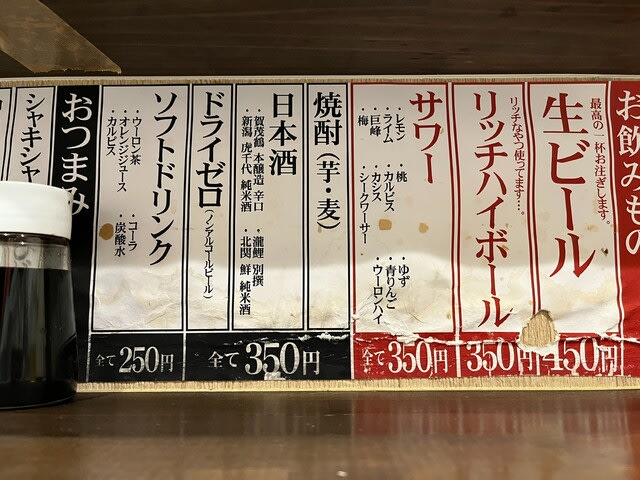 お飲みもの
最高の一杯お注ぎします。
生ビール
450円
リッチなやつ使ってます…。
リッチハイボール
350円
サワー
・レモン ・桃 ・ゆず
・ライム ・カルピス ・青りんご
・巨峰 ・カシス ・ウーロンハイ
・梅 ・シークワーサー
全て350円
焼酎(芋・麦)
日本酒
・賀茂鶴 本醸造 辛口 ・瀧鯉 別撰
・新潟 虎千代 純米酒 ・北関 鮮 純米酒
ドライゼロ(ノンアルコールビール)
全て350円
ソフトドリンク
・ウーロン茶 ・コーラ
・オレンジジュース ・炭酸水
・カルピス
全て250円
おつまみ
シャキシャ